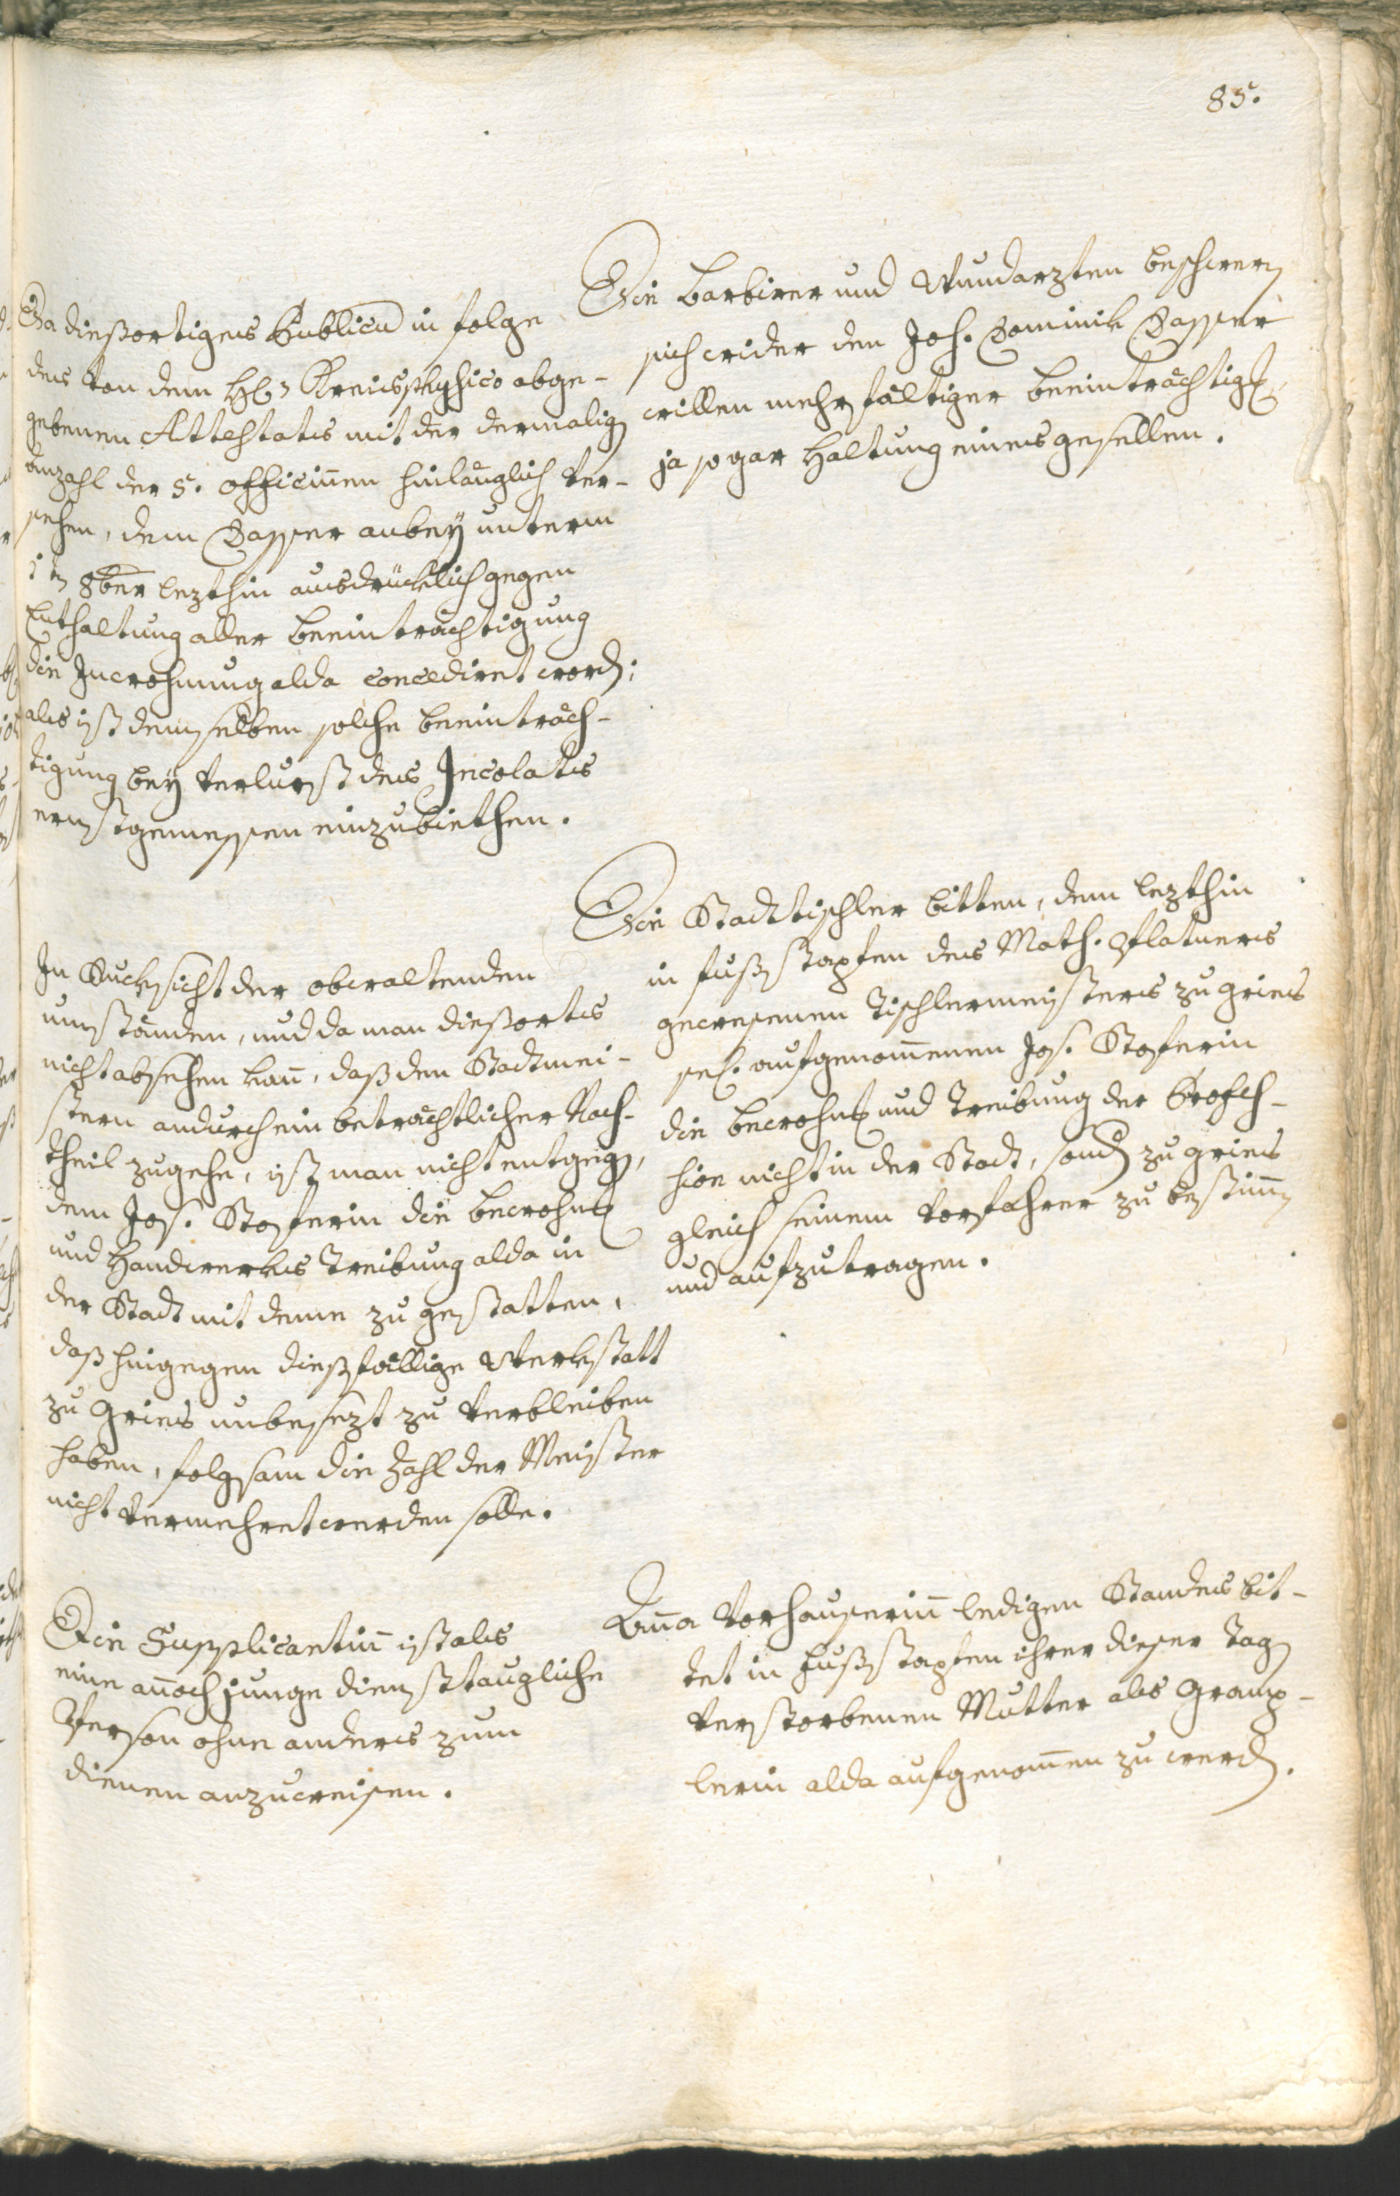 85.
Die Barbirer und Wundarzten beschweren
sich wider den Joh. Dominik Dasser
willen mehrfältiger beeinträchtig
ja so gar Haltung eines gesellen.
Da dießortiges Publicu in folge
des von dem H Kreisphysico abge-
gebenen Attestatis mit der dermalig
anzahl der 5. officinen hinlänglich ver-
sehen, dem Dasser anbeÿ unterm
8ber lezthin ausdrücklich gegen
Enthaltung aller beeinträchtigung
die Inwohnung alda concedirt word;
als ist demselben solche beeinträch-
tigung beÿ verlurst des Incolatis
ernstgemessen einzubiethen.
Die Stadttischler bitten, dem lezthin
in fußstapfen des Math. Platners
gewesenen Tischlermeisters zu gries
sel. aufgenomenen Jos. Staferin
die bewohn und Treibung der Profes-
sion nicht in der Stadt, sond zu gries
gleich seinem vorfahrer zu bestimen
und aufzutragen.
In Rucksicht der obwaltenden
umständen, und da man dießorts
nicht absehen kan, daß den Stadtmei-
stern andurch ein beträchtlicher Nach-
theil zugehe, ist man nicht entgeg,
dem Jos. Staferin die bewohn
und Handwerks Treibung alda in
der Stadt mit deme zu gestatten,
daß hingegen dießfällige Werkstatt
zu Gries unbesezt zu verbleiben
haben, folgsam die Zahl der Meister
nicht vermehret werden solle.
Aña Vorhauserin ledigen Standes bit-
tet in fußstapfen ihrer dieser Tag
verstorbenen Mutter als Gramp-
lerin alda aufgenomen zu werd.
Die Supplicantin ist als
eine anoch junge dienst taugliche
Person ohne anders zum
dienen anzuweisen.